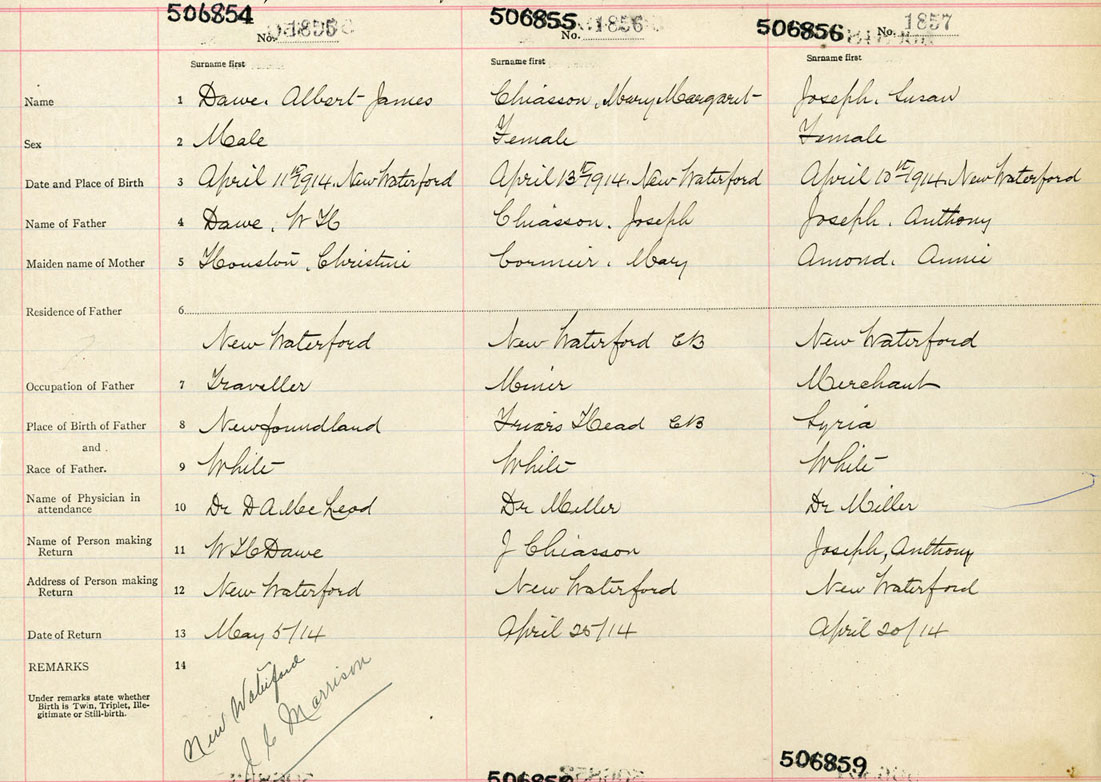 506854 506855 506856
No. 1855 No. 1856 No. 1857
Surname first Surname first Surname first
Name 1 Dawe. Albert James Chiasson, Mary Margaret Joseph. Susan
Sex 2 Male Female Female
Date and Place of Birth 3 April 11th 1914. New Waterford April 13th 1914. New Waterford April 10th 1914. New Waterford
Name of Father 4 Dawe. W H Chiasson. Joseph Joseph. Anthony
Maiden name of Mother 5 Houston, Christine Cormier. Mary Amond. Annie
Residence of Father 6
New Waterford New Waterford CB New Waterford
Occupation of Father 7 Traveller Miner Merchant
Place of Birth of Father 8 Newfoundland Friars Head CB Syria
and
Race of Father. 9 White White White
Name of Physician in
attendance 10 Dr D A McLeod Dr Miller Dr Miller
Name of Person making
Return 11 W H Dawe J Chiasson Joseph, Anthony
Address of Person making
Return 12 New Waterford New Waterford New Waterford
Date of Return 13 May 5/14 April 25/14 April 20/14
REMARKS 14
Under remarks state whether
Birth is Twin, Triplet, Ille-
gitimate or Still-birth.
New Waterford
J C Morrison
506859